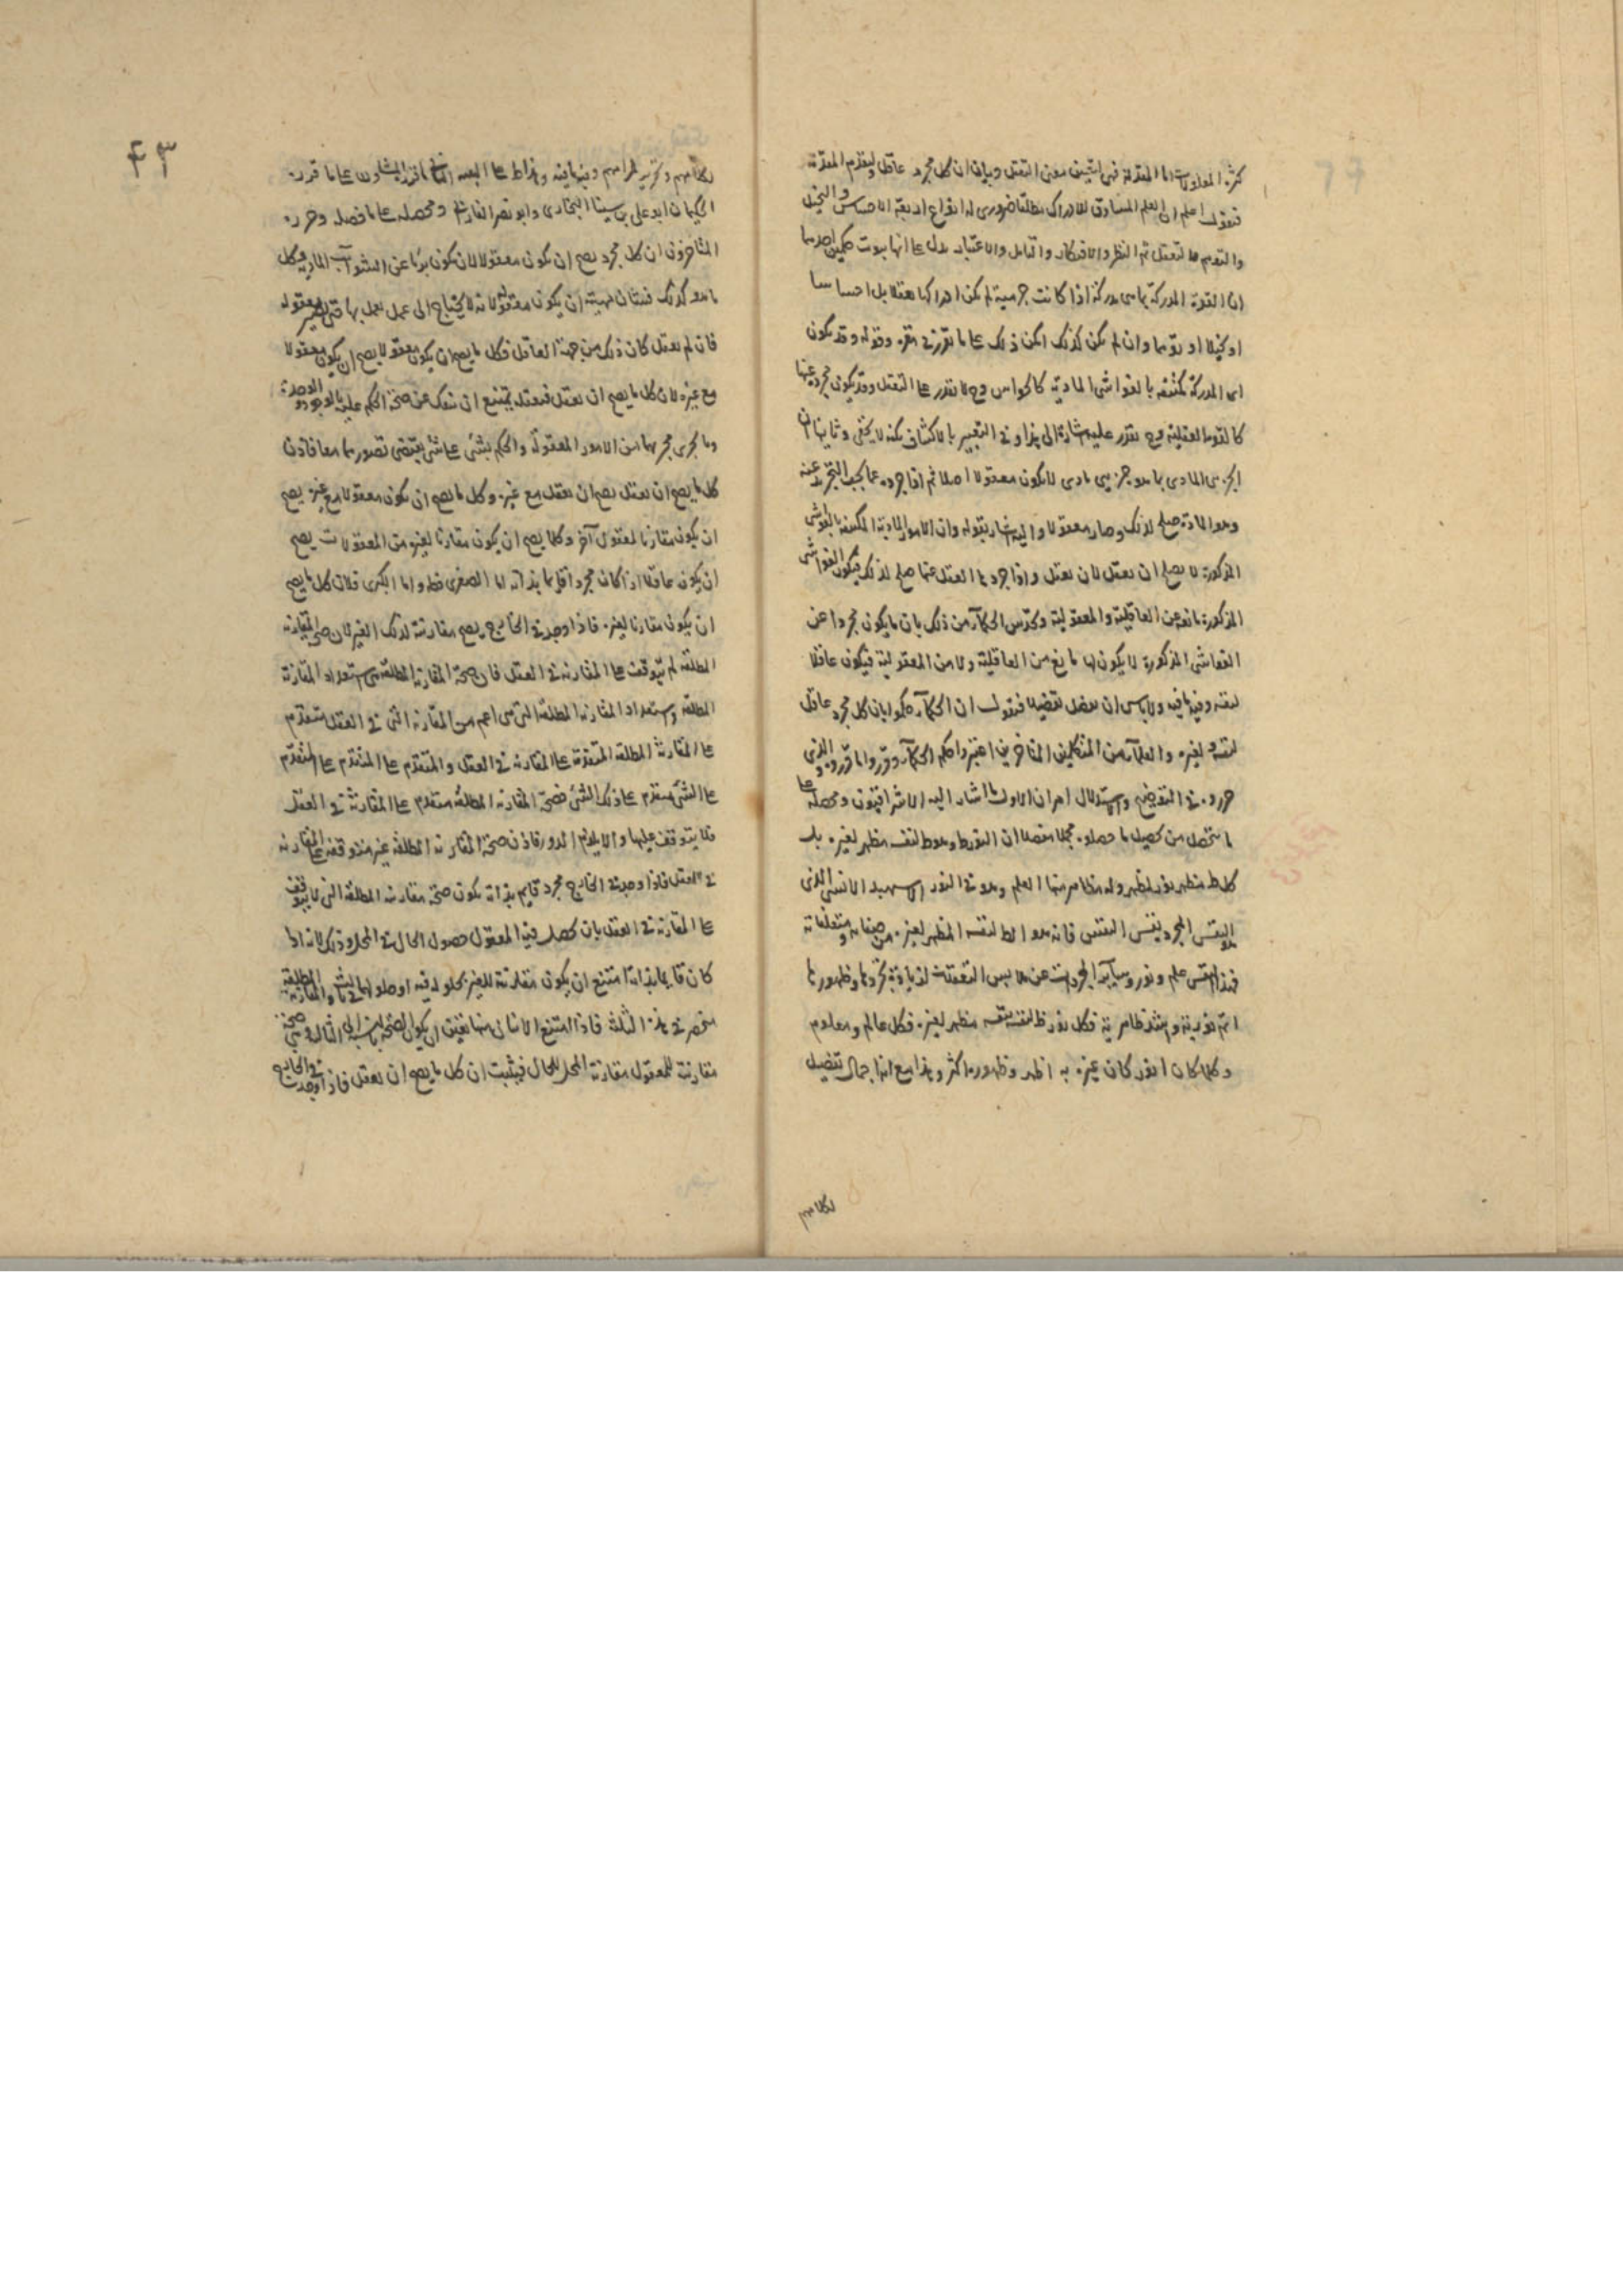 كثرة المعلولات اما المقدمة ففى تعيين معنى التعقل وبيان ان كل مجرد عاقل وليقدم المقدمة
فنقول اعلم ان العلم المساوق للادراك مطلقا ضرورى له انواع اربعة الاحساس والتخيل
والتوهم والتعقل ثم النظر والافتكار والتامل والاعتبار يدل على انها بثبوت حكمين احدهما
ان القوة المدركة بما هى مدركة اذا كانت جرمية لم يكن ادراكها تعقلا بل احساسا
او تخيلا او توهما وان لم يكن كذلك امكن ذلك على ما تقرر فى مقره وقوله وقد يكون
اى المدركة مكتنفة بالغواشى المادية كالحواس وح لا تقدر على التعقل وقد يكون مجردة عنها
كالقوة العقلية وح تقدر عليه اشارة الى هذا وفى التعبير بالاكتناف نكتة لا يخفى وثانيهما ان
الجزئى المادى بما هو جزئى مادى لا يكون معقولا اصلا ثم اذا جرد عما يجب التجريد عنه
وهو المادة صلح لذلك وصار معقولا واليه اشار بقوله وان الامور المادية المكتنفة بالغواشى
المذكورة لا يصلح ان يعقل لان يعقل واذا جردها العقل عنها صلح لذلك فيكون الغواشى
المذكورة مانعة عن العاقلية والمعقولية وتحدس الحكماء من ذلك بان ما يكون مجردا عن
الغواشى المذكورة لا يكون لها مانع من العاقلية ولا من المعقولية فيكون عاقلا
لنفسه وفيه ما فيه ولا باس ان نفصل تفصيلا فنقول ان الحكماء حكموا بان كل مجرد عاقل
لنفسه ولغيره والعلماء من المتكلمين المتاخرين اعتبروا حكم الحكماء وقرروا ما قرروه والذى
حرروه فى التوضيح والاستدلال امران الاول ما اشار اليه الاشراقيون ومحصله على
ما يتحصل من تحصيل ما حصلوه مجملا مفصلا ان النور ظ وهو ظ لنفسه مظهر لغيره بل
كل ظ مظهر نور لمظهر وله مظاهر منها العلم وهو فى النور الاسهبد الانسى الذى
هو النفس المجرد بنفس النفس فانه هو الظ لنفسه المظهر لغيره من صفاته ومتعلقاته
فهذا النفس علم ونور وسائر المجردات عن ملابس التعلقات لزيادة تجردها وظهورها
اتم نورية واشد ظاهرية فكل نور ظ لنفسه بنفسه مظهر لغيره فكل عالم ومعلوم
وكلما كان انور كان غيره به اظهر وظهوره اكثر وهذا مع انه اجمال تفصيل
لكلامهم
لكلامهم وتحرير لمرامهم وفيه ما فيه وهذا ظ على البعيد الثانى ما قرره المشاؤون على ما قرره
الحكيمان ابو على بن سينا البخارى وابو نصر الفارابى ومحصله على ما فصله وحرره
المتاخرون ان كل مجرد يصح ان يكون معقولا لان يكون بريئا عن الشوائب المادية وكل
ما هو كذلك فشان مهيته ان يكون معقولة لانه لا يحتاج الى عمل يعمل بها حتى يصير معقوله
فان لم يعقل كان ذلك من جهة العاقل فكل ما يصح ان يكون معقولا يصح ان يكون معقولا
مع غيره لان كل ما يصح ان يعقل فتعقله يمتنع ان ينفك عن صحة الحكم عليه بالوجود والوحدة
وما يجرى مجراهما من الامور المعقولة والحكم بشئ على شئ يقتضى تصورهما معا فاذن
كل ما يصح ان يعقل يصح ان يعقل مع غيره وكل ما يصح ان يكون معقولا مع غيره يصح
ان يكون مقارنا لمعقول آخر وكلما يصح ان يكون مقارنا لغيره من المعقولات يصح
ان يكون عاقلا اذا كان مجردا قايما بذاته اما الصغرى فظ واما الكبرى فلان كل ما يصح
ان يكون مقارنا لغيره فاذا وجد فى الخارج يصح مقارنته لذلك الغير لان صحة المقارنة
المطلقة لم يتوقف على المقارنة فى العقل فان صحة المقارنة المطلقة هى استعداد المقارنة
المطلقة واستعداد المقارنة المطلقة التى هى اعم من المقارنة التى فى العقل متقدم
على المقارنة المطلقة المتقدمة على المقارنة فى العقل والمتقدم على المتقدم على المتقدم
على الشئ متقدم على ذلك الشئ فصحة المقارنة المطلقة متقدم على المقارنة فى العقل
فلا يتوقف عليها والا يلزم الدور فاذن صحة المقارنة المطلقة غير متوقفة على المقارنة
فى العقل فاذا وجد فى الخارج مجرد قايم بذاته يكون صحة مقارنته المطلقة التى لا يتوقف
على المقارنة فى العقل بان يحصل فيه المعقول حصول الحال فى المحل وذلك لانه اذا
كان قايما بذاته امتنع ان يكون مقارنته للغير بحلوله فيه او حلولهما فى ثالث والمقارنة المطلقة
منحصر فى هذه الثلثة فاذا امتنع الاثنان منها تعين ان يكون الصحة بالنسبة الى الثالث وهى صحة
مقارنته للمعقول مقارنة المحل للحال فيثبت ان كل ما يصح ان يعقل فاذا وجد فى الخارج
٤٣